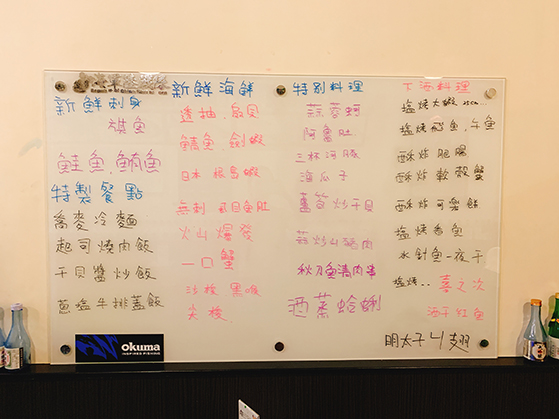 新鮮刺身
旗魚
鮭魚.鮪魚
特製餐點
蕎麥冷麵
起司燒肉飯
干貝醬炒飯
蔥鹽牛排蓋飯
okuma
INSPIRED FISHING
新鮮海鮮
透抽.扇貝
鯖魚.劍蝦
日本 角蝦
無刺 虱目魚肚
火山爆發
一口蟹
沙梭 黑喉
尖梭
特別料理
蒜蓉蚵
阿魯肚
三杯河豚
海瓜子
醬筍炒干貝
蒜炒山豬肉
秋刀魚燒肉串
酒蒸蛤蜊
下酒料理
鹽烤大蝦
鹽烤 魚.午魚
酥炸肥腸
酥炸軟殼蟹
酥炸可樂餅
鹽烤香魚
水針魚一夜干
鹽烤.. 喜之次
紅魚
明太子雞翅